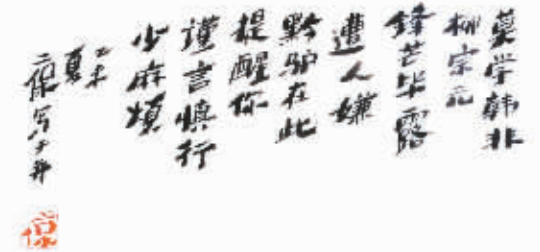 莫学韩非
柳宗元
锋芒毕露
遭人嫌
黔驴在此
提醒你
谨言慎行
少麻烦
乙未
夏